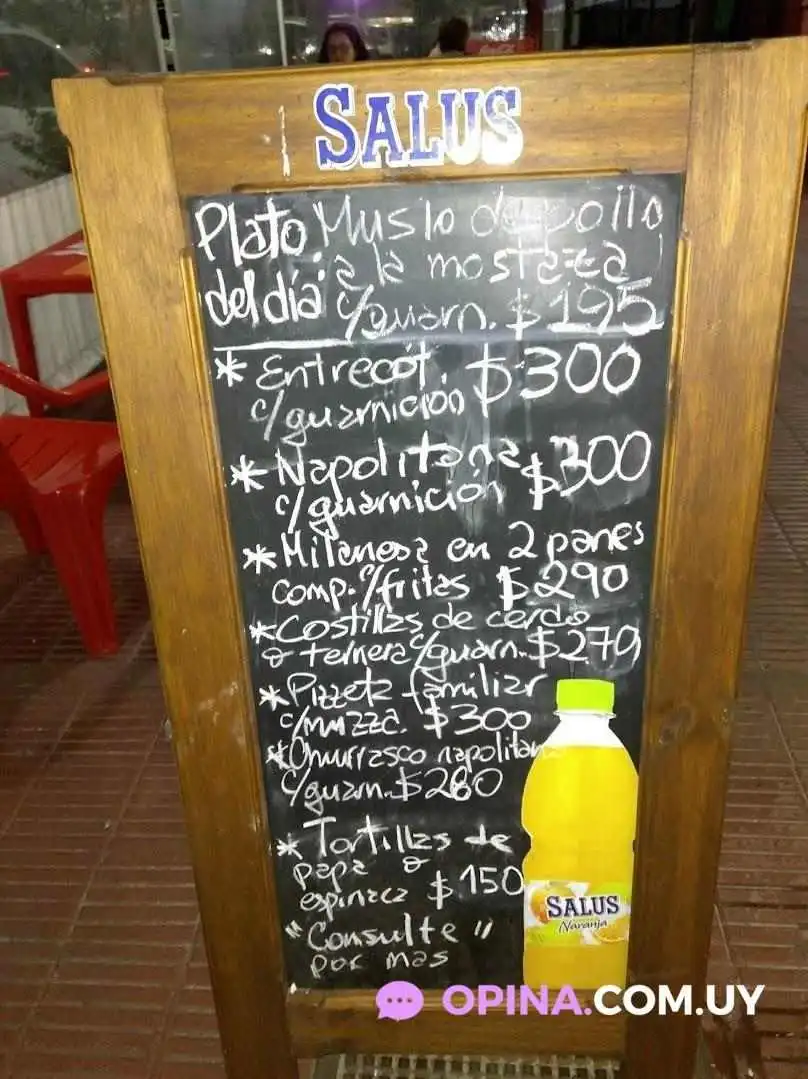 SALUS
Plato del día: Muslo de pollo
a la mostaza
c/guarn. $195
* Entrecot. $300
c/guarnición
* Napolitana $300
c/guarnición
* Milanesa en 2 panes
comp. c/fritas $290
* Costillas de cerdo
o ternera c/guarn. $279
* Pizzeta familiar
c/muzza. $300
* Churrasco napolitana
c/guarn. $280
* Tortillas de
papa o
espinaca $150
"Consulte"
por mas
SALUS
Naranja
OPINA.COM.UY